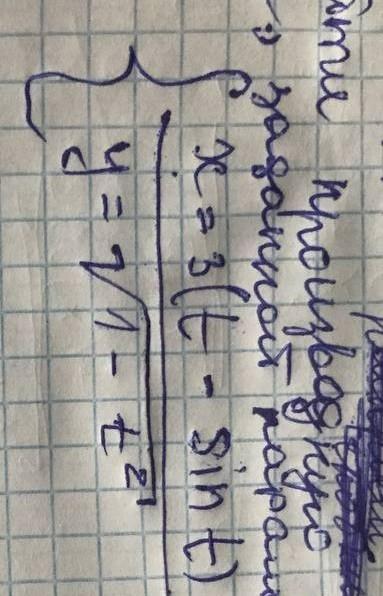 йти производную
заданной парам
x = 3(t - sin t)
y = √1 - t²